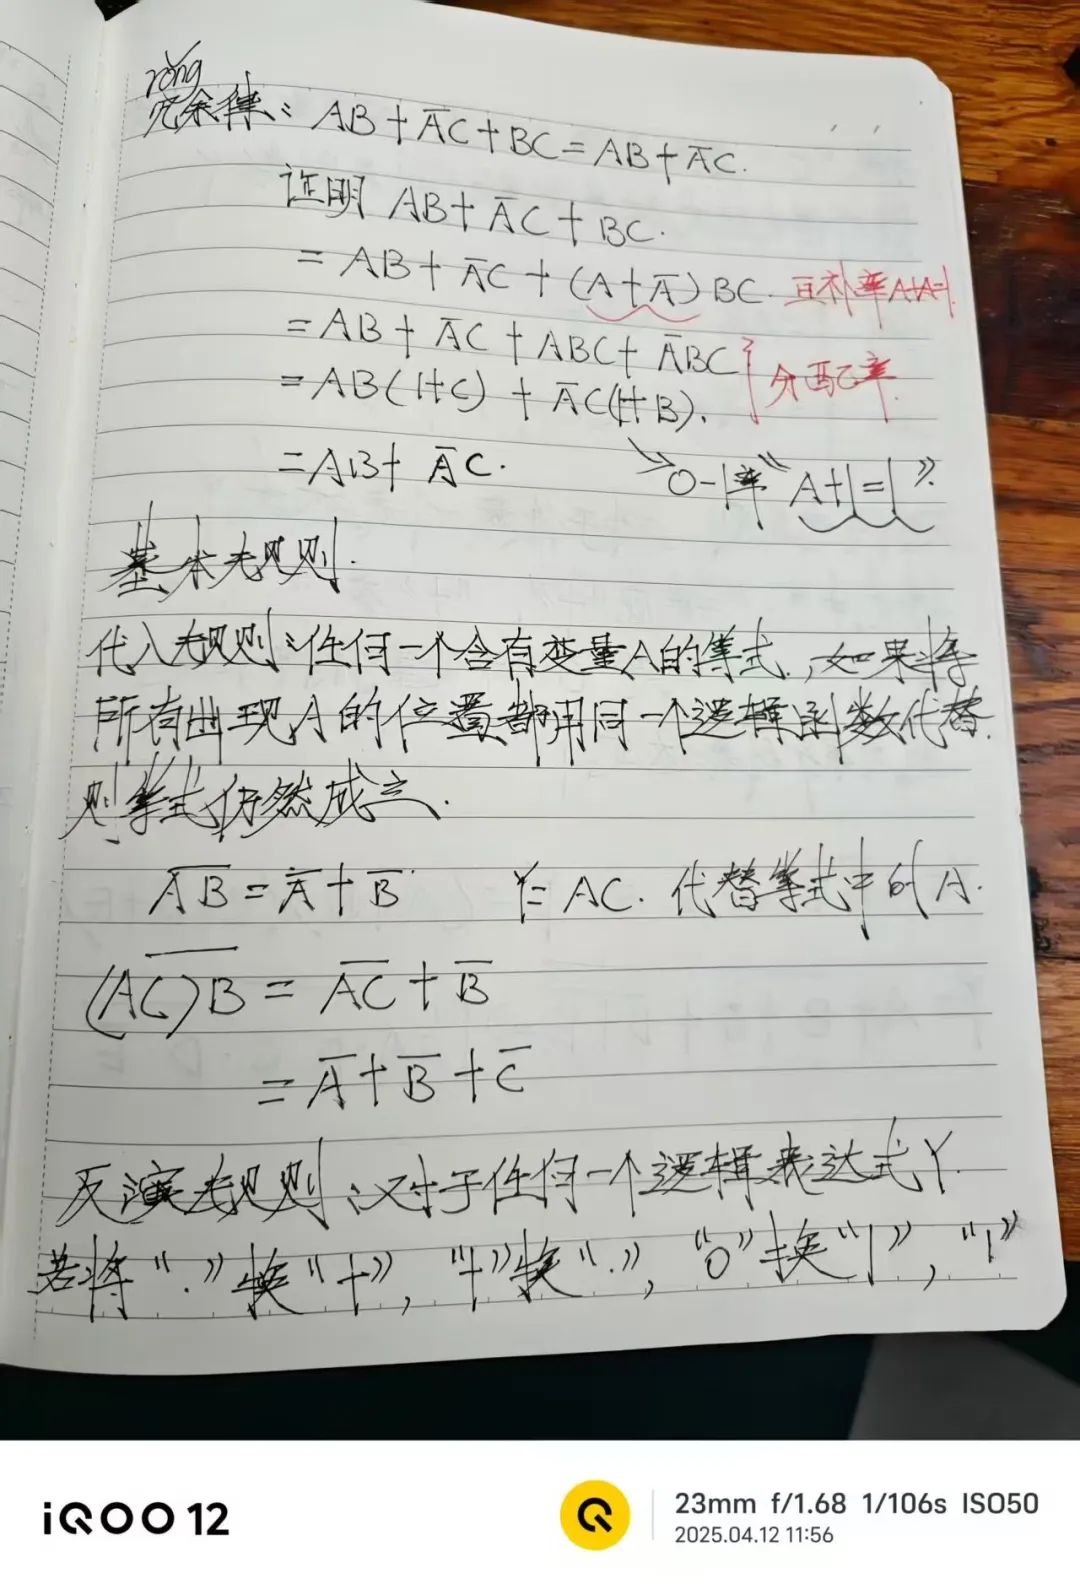 rǒng
冗余律：AB+A̅C+BC=AB+A̅C.
证明 AB+A̅C+BC.
=AB+A̅C+(A+A̅)BC. 互补率A+A̅=1.
=AB+A̅C+ABC+A̅BC
分配率.
=AB(1+C)+A̅C(1+B).
=AB+A̅C. 0-1率“A+1=1”.
基本规则.
代入规则：任何一个含有变量A的等式.,如果将
所有出现A的位置都用同一个逻辑函数代替.
则等式仍然成立.
A̅B̅=A̅+B̅ Y=AC. 代替等式中的A.
(A̅C̅)B̅=A̅C̅+B̅
=A̅+B̅+C̅
反演规则：对于任何一个逻辑表达式Y.
若将“·”换“+”,“+”换“·”,“0”换“1”,“1”
iQOO 12
23mm f/1.68 1/106s ISO50
2025.04.12 11:56